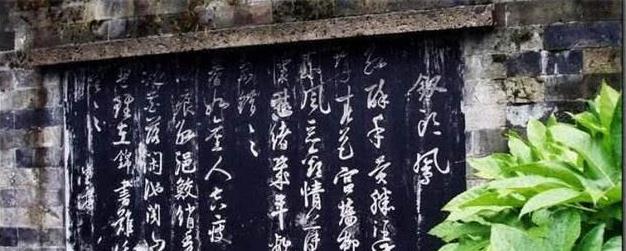 釵头鳳
紅酥手黄縢酒
城春色宮墻柳
東風惡歡情薄
懷愁緒幾年離
錯々
春如舊人空瘦
痕紅浥鮫綃透
花落閑池閣山
盟雖在錦書難